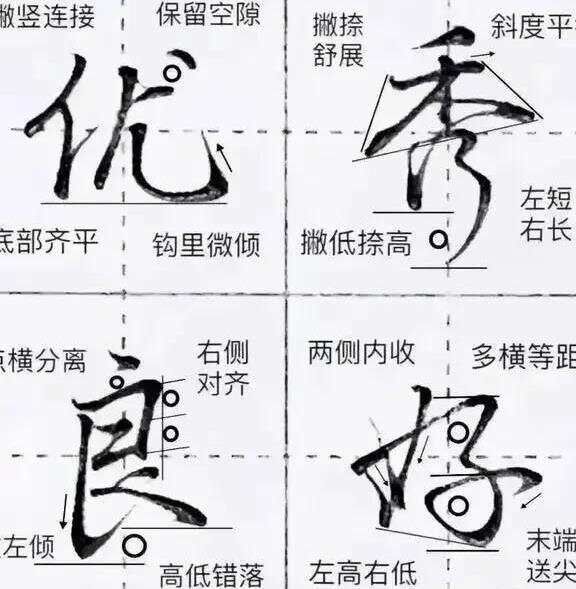 撇竖连接
保留空隙
优
底部齐平
钩里微倾
撇捺
舒展
斜度平
秀
左短
右长
撇低捺高
点横分离
右侧
对齐
良
左倾
高低错落
两侧内收
多横等距
好
左高右低
末端
送尖